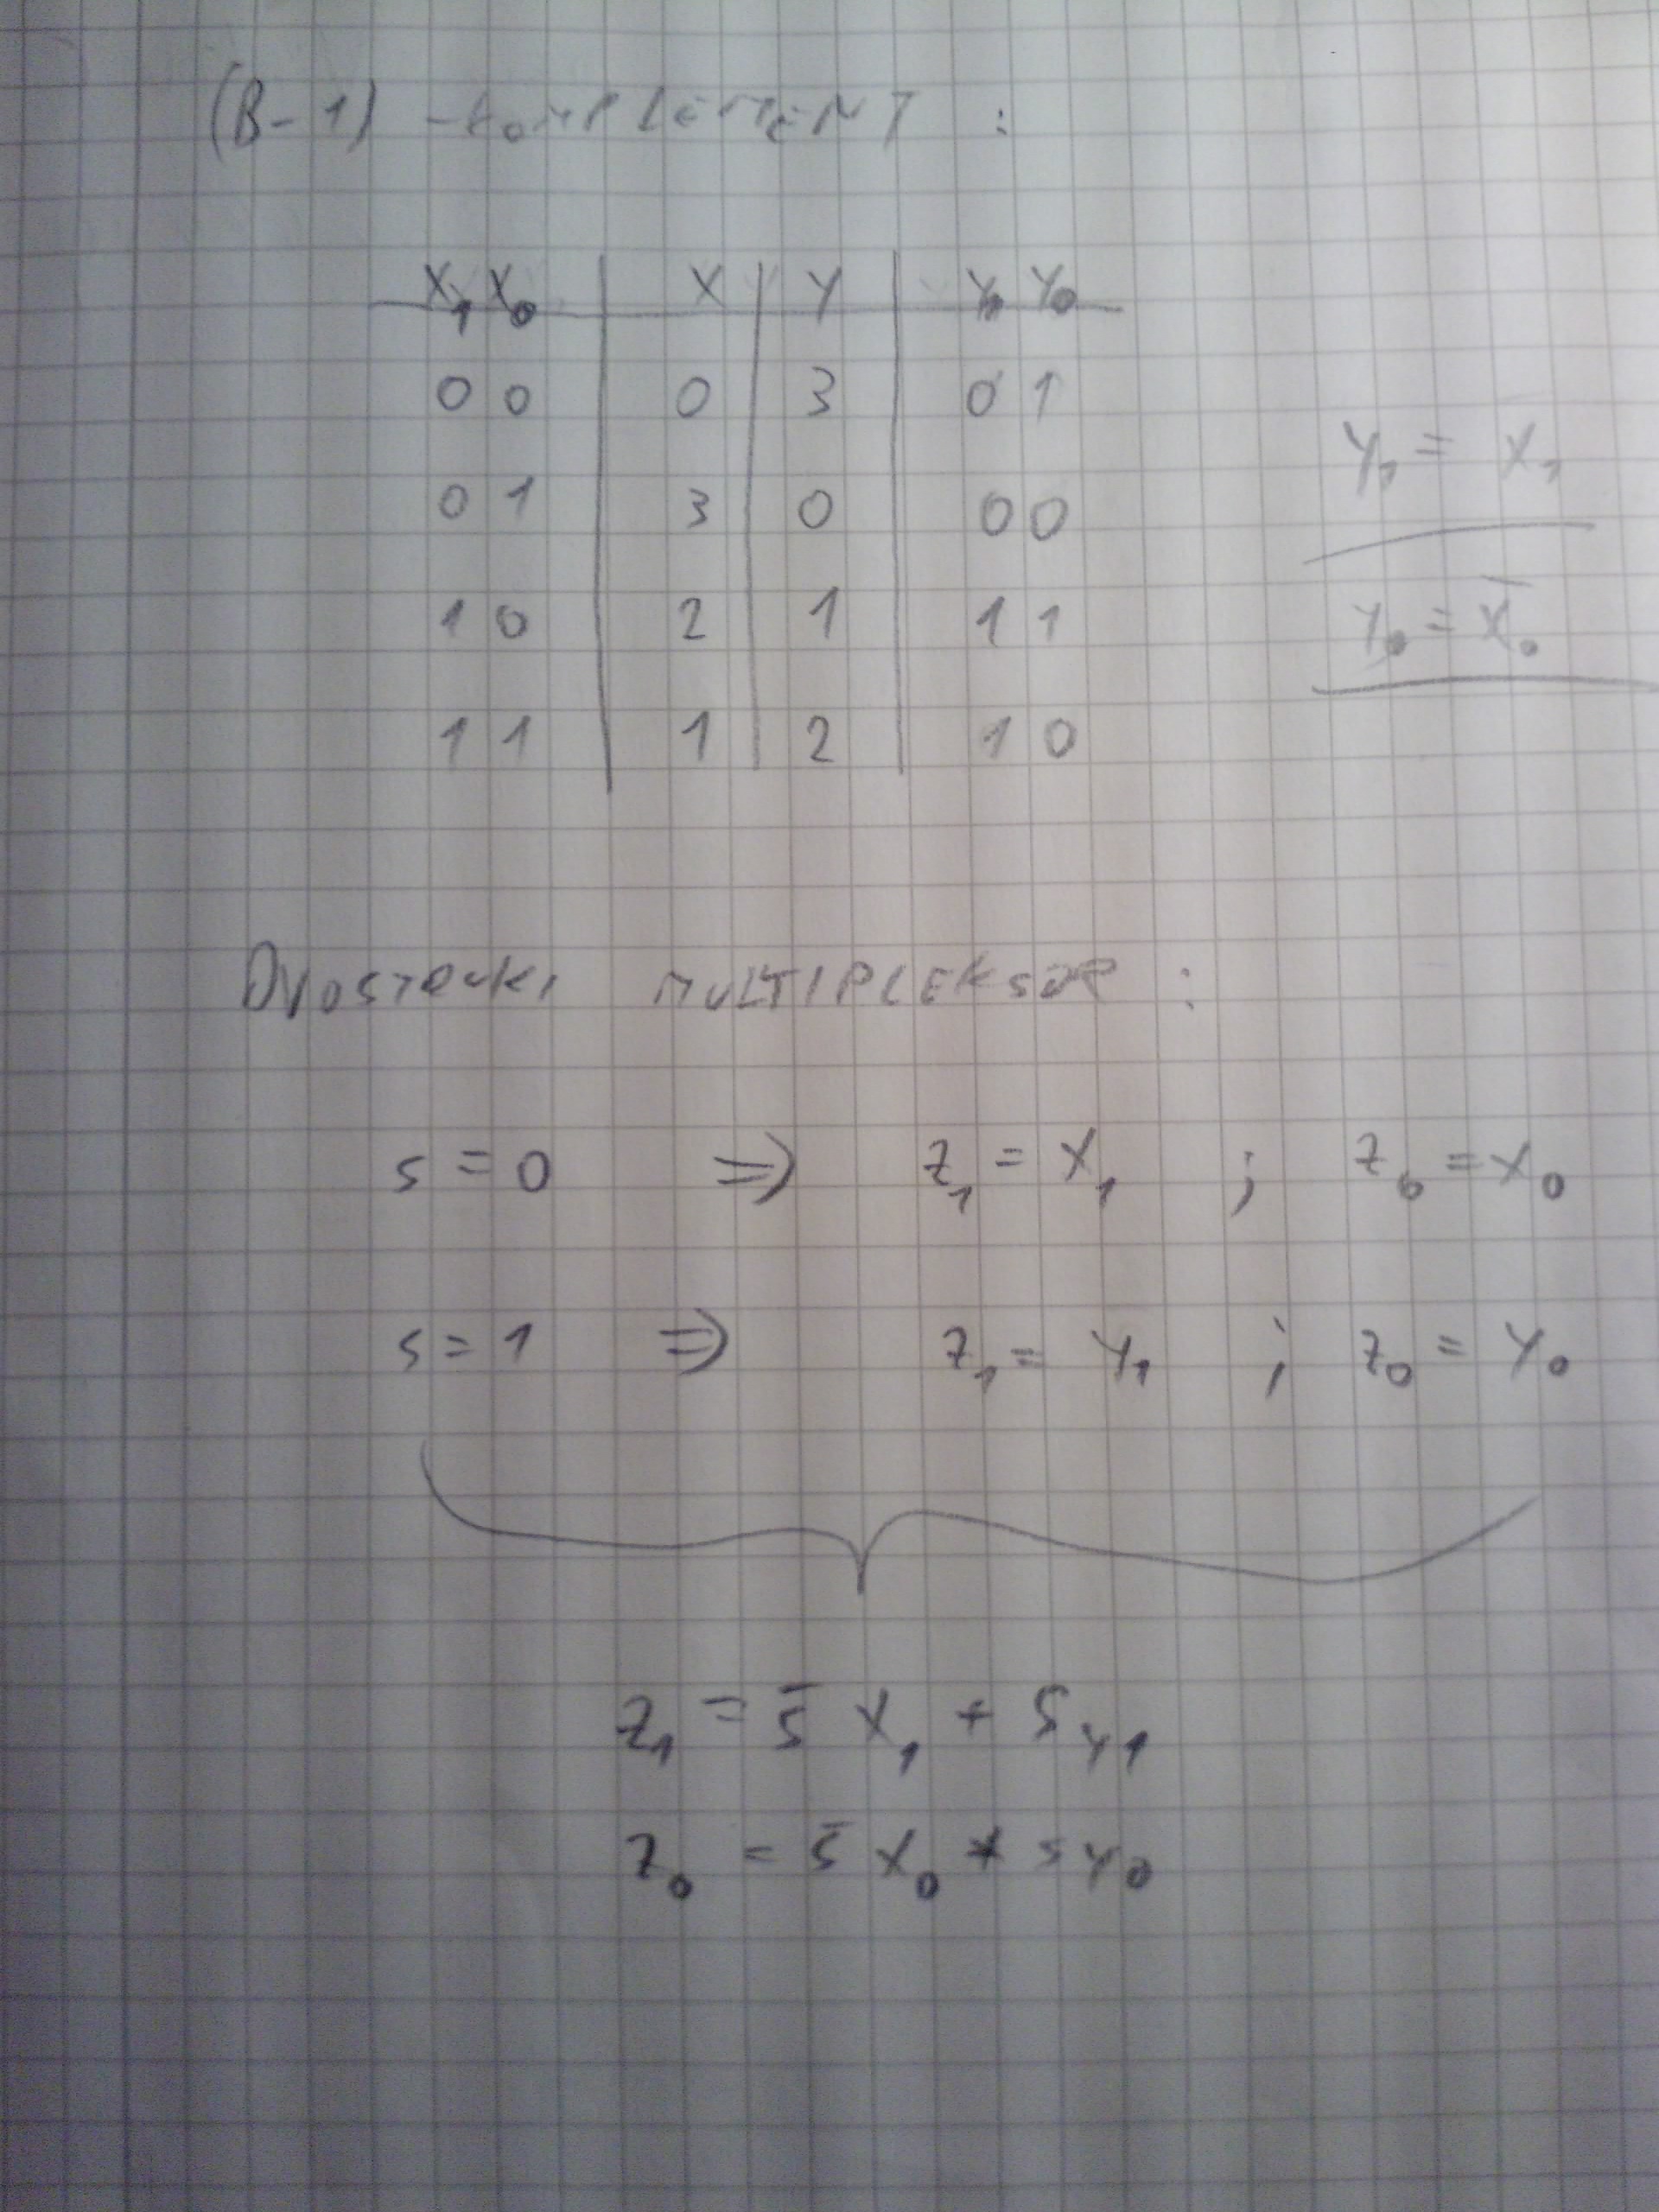 (B-1) -KOMPLEMENT :
X₁ X₀ | X | Y | Y₁ Y₀
0 0 | 0 | 3 | 0 1
Y₁ = X₁
0 1 | 3 | 0 | 0 0
Y₀ = X̅₀
1 0 | 2 | 1 | 1 1
1 1 | 1 | 2 | 1 0
DVOSTRUKI MULTIPLEKSOR :
s = 0 ⇒ Z₁ = X₁ ; Z₀ = X₀
s = 1 ⇒ Z₁ = Y₁ ; Z₀ = Y₀
Z₁ = s̅ X₁ + S Y₁
Z₀ = s̅ X₀ + s Y₀